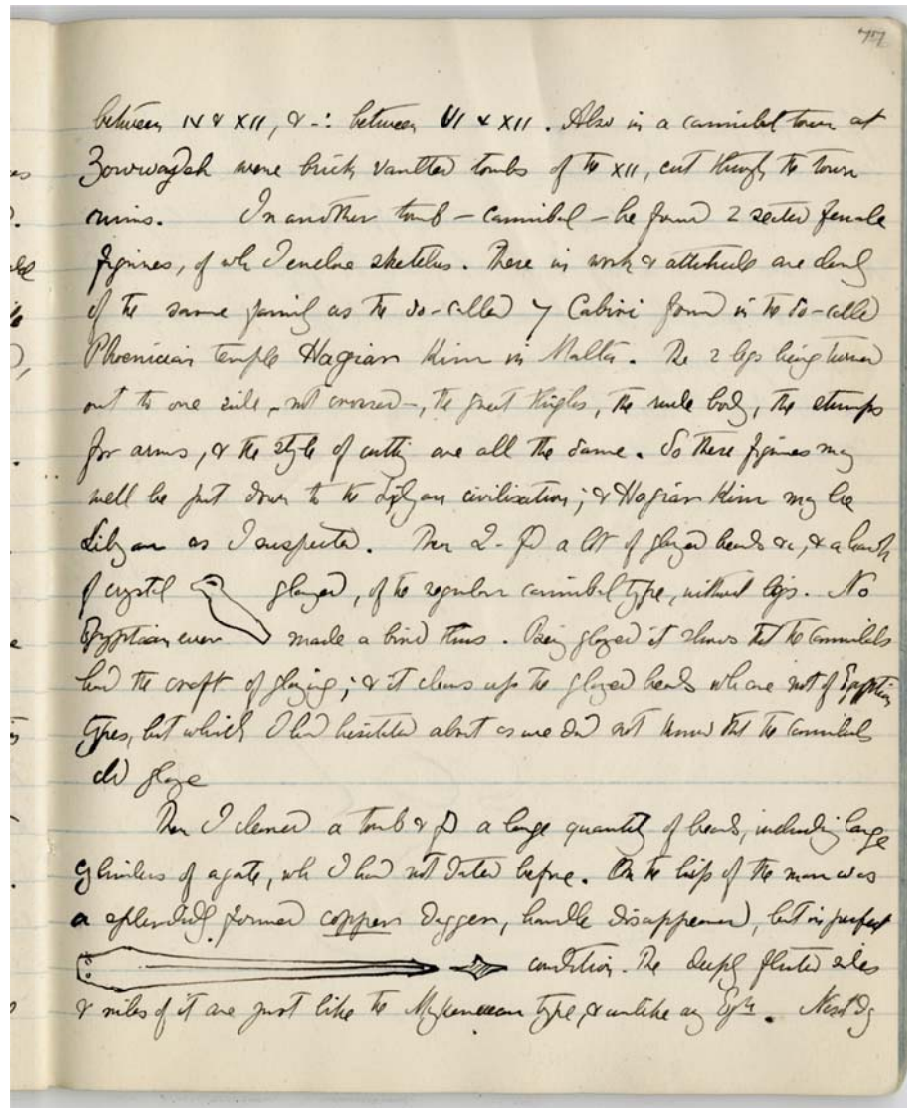 77
between IV & XII, & ∴ between VI & XII. Also in a cannibal town at
Zowwaydeh were brick vaulted tombs of the XII, cut through the town
ruins. In another tomb – cannibal – he found 2 seated female
figures, of wh I enclose sketches. These in work & attitude are clearly
of the same family as the so-called 7 Cabiri found in the so-called
Phoenician temple Hagiar Kim in Malta. The 2 legs being turned
out to one side – not crossed –, the great thighs, the rude body, the stumps
for arms, & the style of cutting are all the same. So these figures may
well be put down to the Libyan civilisation; & Hagiar Kim may be
Libyan as I suspected. Then Q- fd a lot of glazed beads &c, & a hawk
of crystal glazed, of the regular cannibal type, without legs. No
Egyptian ever made a bird thus. Being glazed it shows that the cannibals
had the craft of glazing; & it clears up the glazed beads wh are not of Egyptian
types, but which I had hesitated about as we did not know that the cannibals
did glaze
Then I cleared a tomb & fd a large quantity of beads, including large
cylinders of agate, wh I had not dated before. On the hips of the man was
a splendidly formed copper dagger, handle disappeared, but in perfect
condition. The deeply fluted sides
& of it are just like the Mykenaean type, & unlike any Egtn. Next Dg